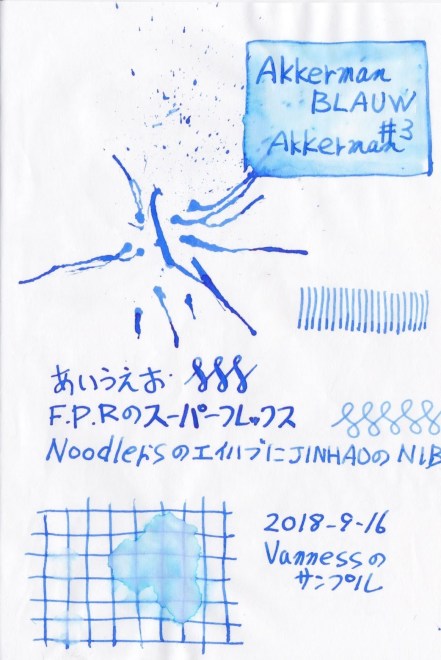 Akkerman
BLAUW
Akkerman #3
あいうえお
F.P.Rのスーパーフレックス
Noodler'sのエイハブにJINHAOのNIB
2018-9-16
Vannessの
サンプル